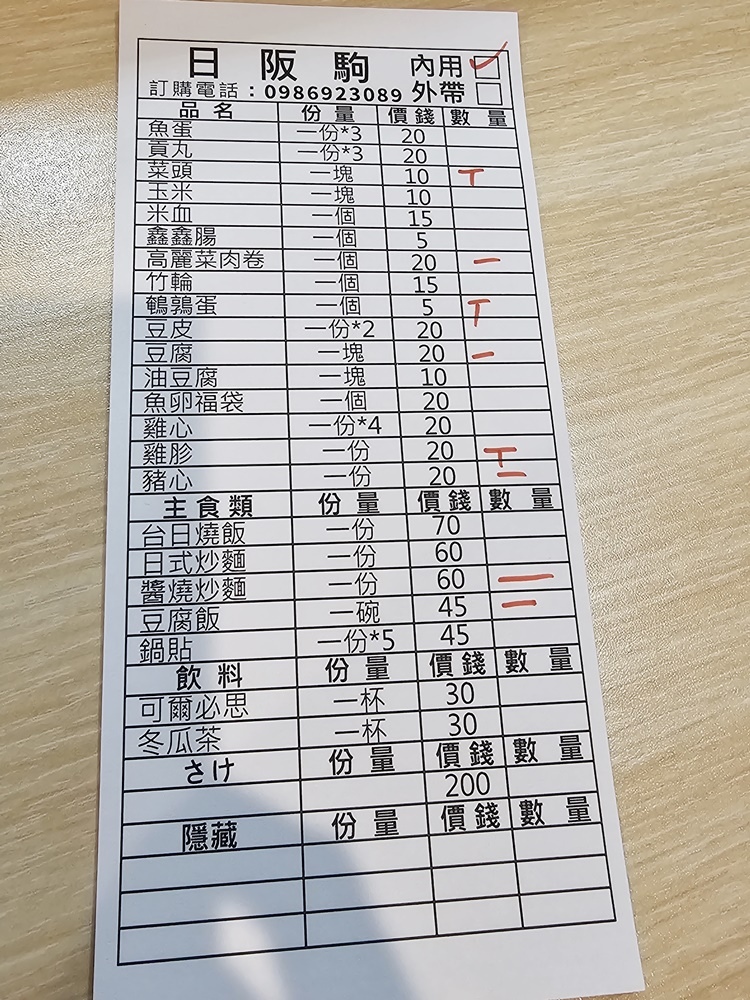 日 阪 駒 內用 ✓
訂購電話：0986923089 外帶
品名 份量 價錢 數量
魚蛋 一份*3 20
貢丸 一份*3 20
菜頭 一塊 10 T
玉米 一塊 10
米血 一個 15
鑫鑫腸 一個 5
高麗菜肉卷 一個 20 一
竹輪 一個 15
鵪鶉蛋 一個 5 T
豆皮 一份*2 20
豆腐 一塊 20 一
油豆腐 一塊 10
魚卵福袋 一個 20
雞心 一份*4 20
雞胗 一份 20 T
豬心 一份 20 一
主食類 份量 價錢 數量
台日燒飯 一份 70
日式炒麵 一份 60
醬燒炒麵 一份 60 一
豆腐飯 一碗 45 一
鍋貼 一份*5 45
飲料 份量 價錢 數量
可爾必思 一杯 30
冬瓜茶 一杯 30
さけ 份量 價錢 數量
200
隱藏 份量 價錢 數量